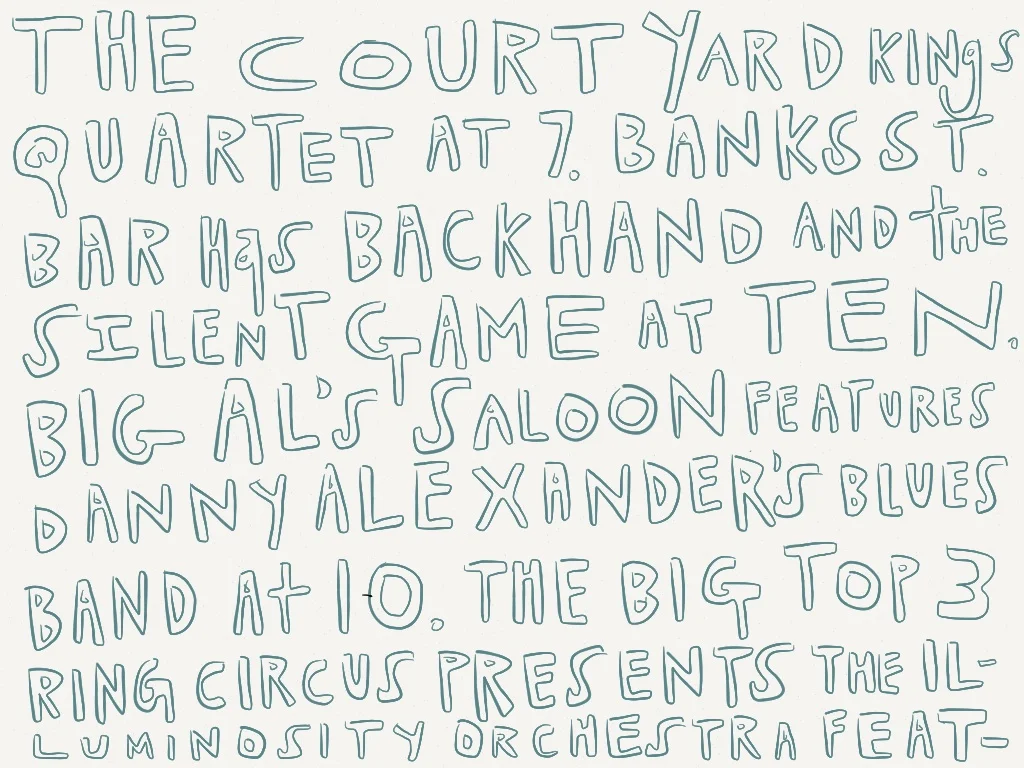 THE COURT YARD KINgS
QUARTET AT 7. BANKS ST.
BAR HaS BACKHAND AND tHE
SILENT GAME AT TEN.
BIG AL'S SALOON FEATURES
DANNY ALEXANDER'S BLUES
BAND At 10. THE BIG TOP 3
RING CIRCUS PRESENTS THE IL-
LUMINOSITY ORCHESTRA FEAT-